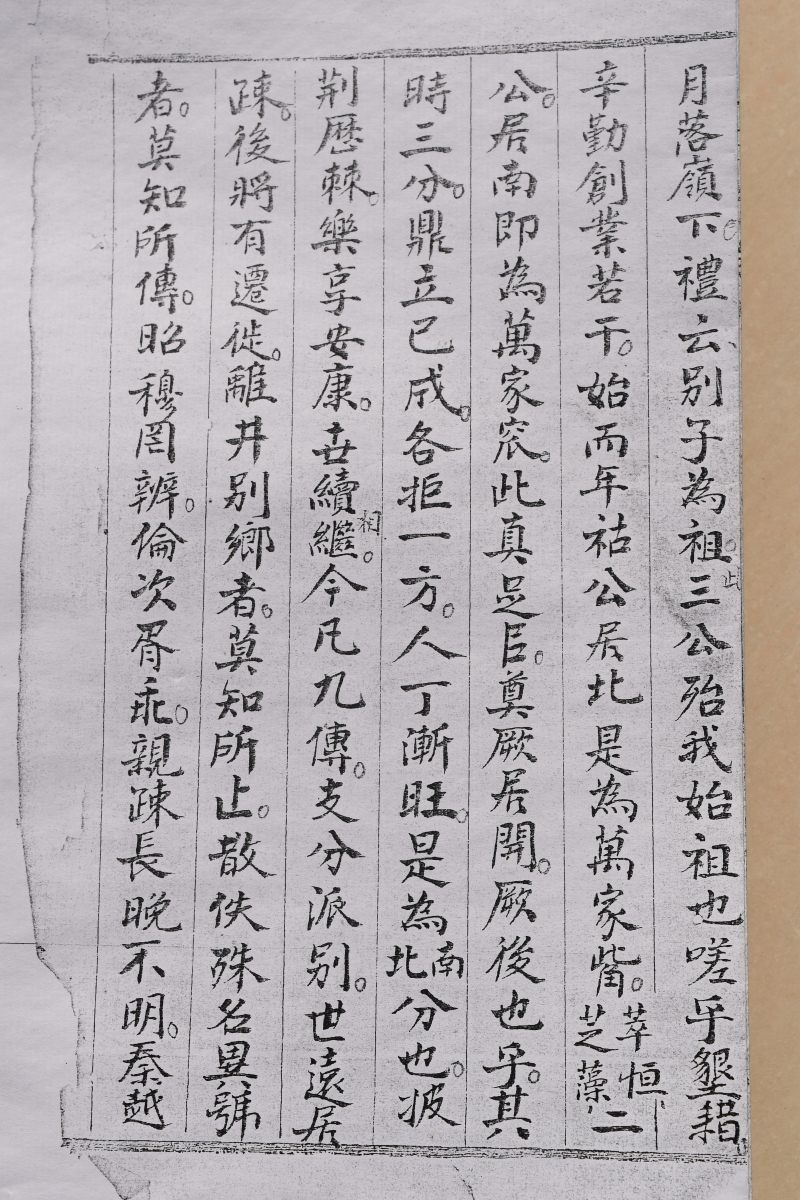 月落嶺下。禮云、别子為祖。三公殆我始祖也嗟乎墾耤
辛勤創業若干。始而年祜公居北是為萬家㟸。萃恒芝藻二
公。居南即為萬家宲。此真足㠯。奠厥居開。厥後也乎。其
時三分。鼎立已成。各拒一方。人丁漸旺。是為南北分也。披
荆歷棘。樂享安康。世續相繼。今凡九傳。支分派别。世遠居
疎。後將有遷徙。離井别鄉者。莫知所止。散佚殊名異號
者。莫知所傳。昭穆罔辨。倫次胥乖。親疎長晚不明。秦越